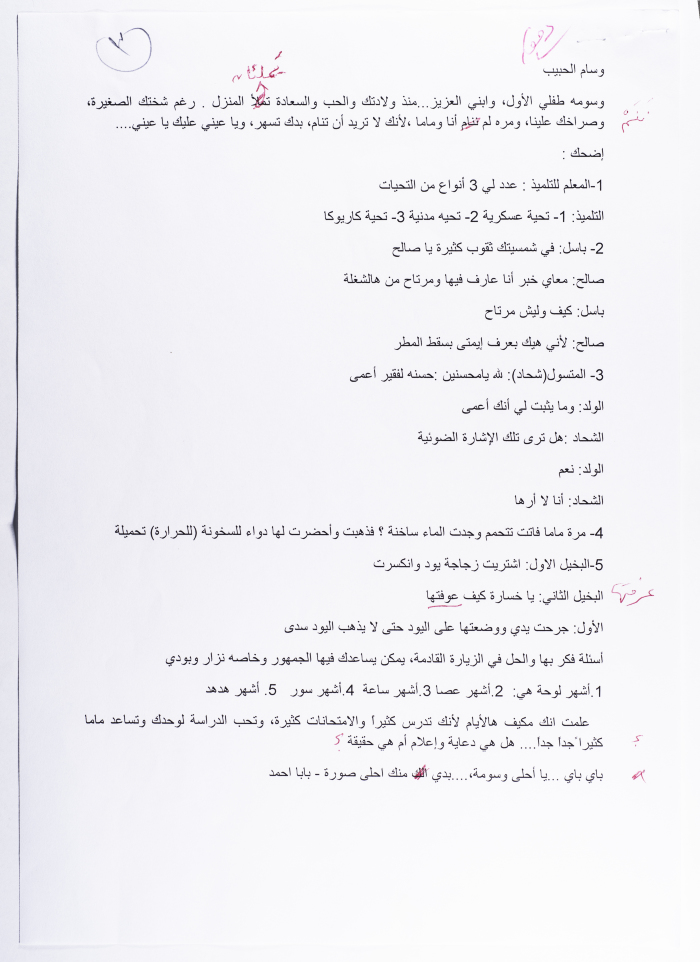 ٣
وسام الحبيب
تملئان
وسومه طفلي الأول، وابني العزيز...منذ ولادتك والحب والسعادة تملأ المنزل . رغم شختك الصغيرة،
وصراخك علينا، ومره لم تنام أنا وماما ،لأنك لا تريد أن تنام، بدك تسهر، ويا عيني عليك يا عيني....
نَنَمْ
إضحك :
1-المعلم للتلميذ : عدد لي 3 أنواع من التحيات
التلميذ: 1- تحية عسكرية 2- تحيه مدنية 3- تحية كاريوكا
2- باسل: في شمسيتك ثقوب كثيرة يا صالح
صالح: معاي خبر أنا عارف فيها ومرتاح من هالشغلة
باسل: كيف وليش مرتاح
صالح: لأني هيك بعرف إيمتى بسقط المطر
3- المتسول(شحاد): لله يامحسنين :حسنه لفقير أعمى
الولد: وما يثبت لي أنك أعمى
الشحاد :هل ترى تلك الإشارة الضوئية
الولد: نعم
الشحاد: أنا لا أرها
4- مرة ماما فاتت تتحمم وجدت الماء ساخنة ؟ فذهبت وأحضرت لها دواء للسخونة (للحرارة) تحميلة
5-البخيل الاول: اشتريت زجاجة يود وانكسرت
البخيل الثاني: يا خسارة كيف عوفتها
عرفتها
الأول: جرحت يدي ووضعتها على اليود حتى لا يذهب اليود سدى
أسئلة فكر بها والحل في الزيارة القادمة، يمكن يساعدك فيها الجمهور وخاصه نزار وبودي
1.أشهر لوحة هي: 2.أشهر عصا 3.أشهر ساعة 4.أشهر سور 5. أشهر هدهد
علمت انك مكيف هالأيام لأنك تدرس كثيراً والامتحانات كثيرة، وتحب الدراسة لوحدك وتساعد ماما
كثيرا ًجداً جداً.... هل هي دعاية وإعلام أم هي حقيقة ؟
؟
باي باي ...يا أحلى وسومة،....بدي منك احلى صورة - بابا احمد